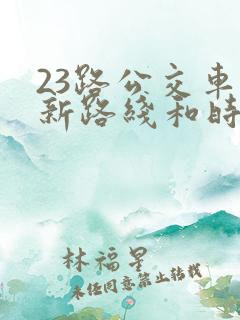 23路公交车
新路綫和時
林福星
未经同意禁止转载